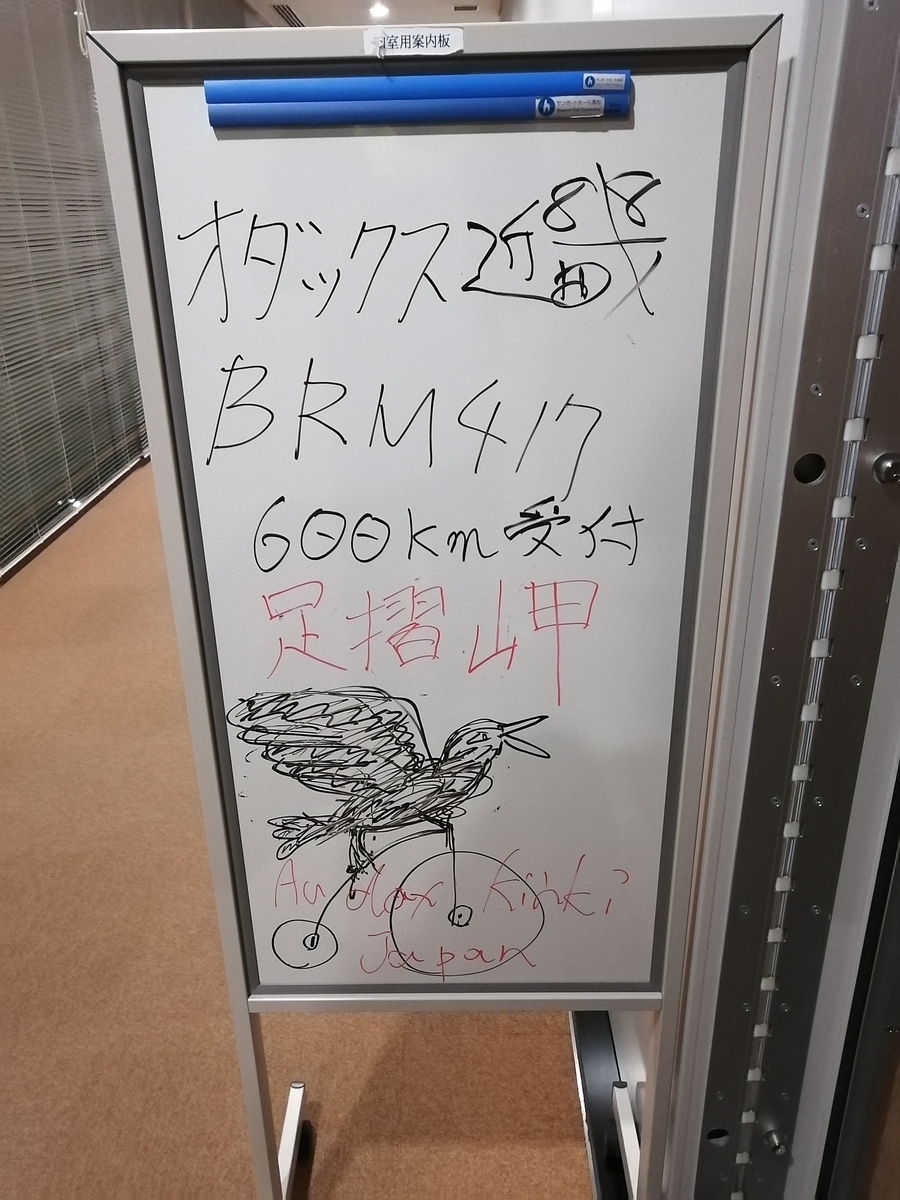 室用案内板
サンポートホール高松
オダックス近畿
BRM417
600km受付
足摺岬
Audax Kinki
Japan